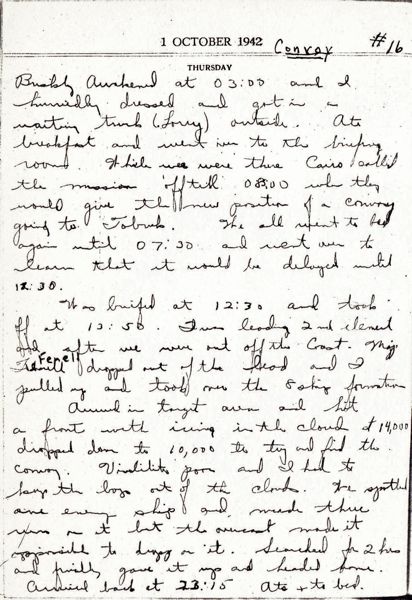 1 OCTOBER 1942 Convoy #16
THURSDAY
Awakened at 03:00 and I
humidly dressed and got in a
waiting truck (Lorry) outside. Ate
breakfast and went over to the briefing
room. While we were there Cairo called
the mission off till 08:00 when they
would give the new position of a convoy
going to Tobruk. We all went to bed
again until 07:30 and went over to
learn that it would be delayed until
12:30.
Was briefed at 12:30 and took
off at 13:50. I was leading 2nd element
and after we were out off the Coast. Maj.
Fenell dropped out of the lead and I
pulled up and took over the 8 ship formation
Arrived in target area and hit
a front with icing in the clouds at 14,000
dropped down to 10,000 to try and find the
convoy. poor and I had to
keep the boys out of the clouds. We spotted
one enemy ship and made three
runs on it but the overcast made it
impossible to drop on it. Searched for 2 hrs
and finally gave it up and headed home.
Arrived back at 23:15 Ate + to bed.